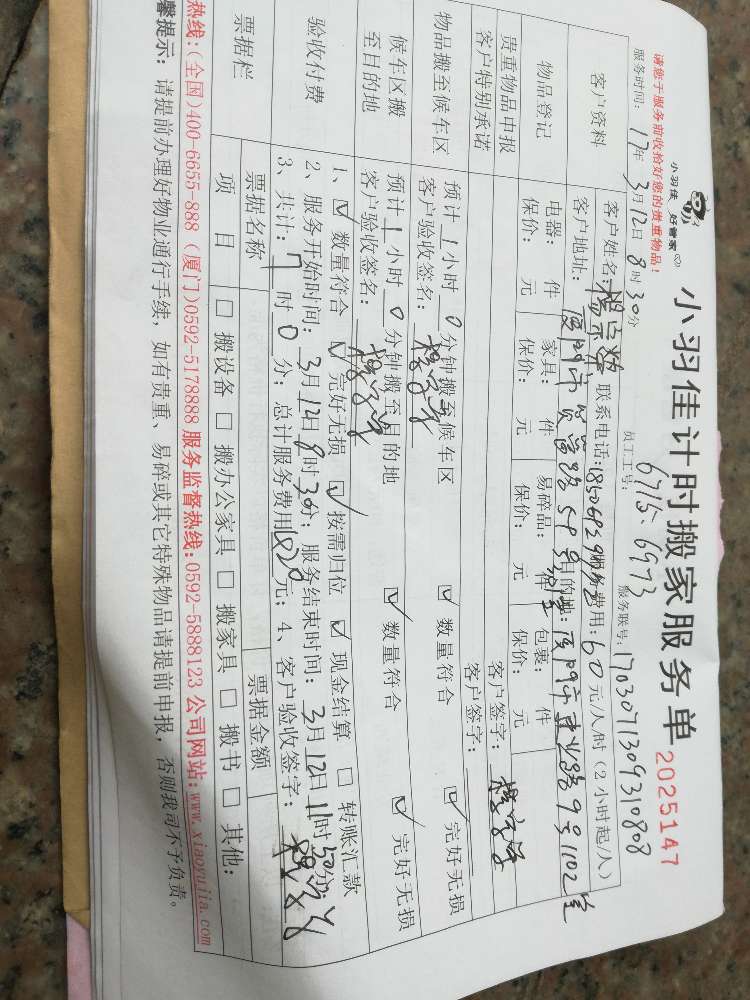 小羽佳 好管家
小羽佳计时搬家服务单 2025147
请您于服务前收拾好您的贵重物品！
员工工号：6715、6973
服务时间：17年3月12日8时30分 服务联号：1703071309310808
客户资料
客户姓名： 联系电话： 服务费用：60元/人/时（2小时起/人）
客户地址： 目的地：
物品登记
电器： 件 家具： 件 易碎品： 件 包裹： 件
保价： 元 保价： 元 保价： 元 保价： 元
贵重物品申报 客户签字：
客户特别承诺 客户签字：
物品搬至候车区
预计1小时0分钟搬至候车区 ☑数量符合 ☑完好无损
客户验收签名：
候车区搬至目的地
预计1小时0分钟搬至目的地 ☑数量符合 ☑完好无损
客户验收签名：
验收付费
1、☑数量符合 ☑完好无损 ☑按需归位 ☑现金结算 □转账汇款
2、服务开始时间：3月12日8时30分；服务结束时间：3月12日11时50分
3、共计：7时0分；总计服务费用 元；4、客户验收签字：
票据栏
票据名称 票据金额
项目 □搬设备 □搬办公家具 □搬家具 □搬书 □其他：
热线：(全国)400-6655-888 (厦门)0592-5178888 服务监督热线：0592-5888123 公司网站：www.xiaoyujia.com
馨提示：请提前办理好物业通行手续，如有贵重、易碎或其它特殊物品请提前申报，否则我司不予负责。